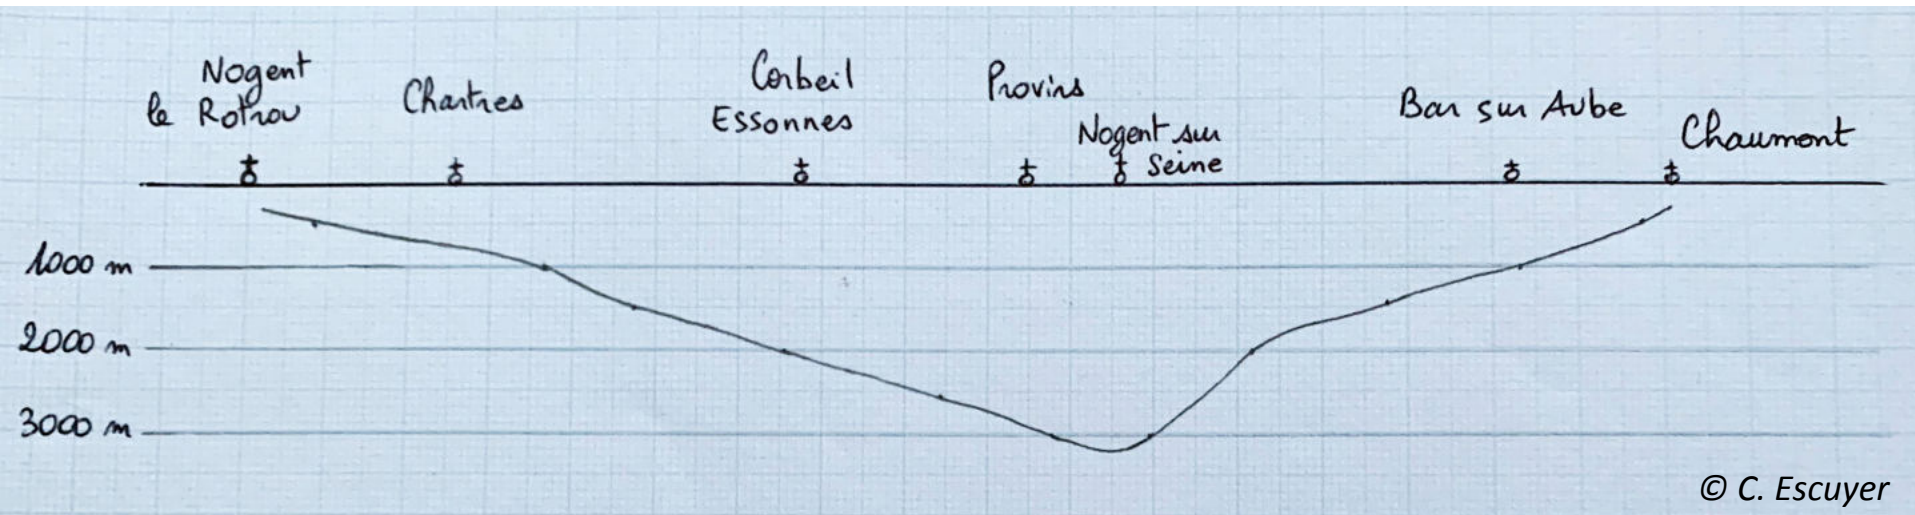 Nogent
le Rotrou
Chartres
Corbeil
Essonnes
Provins
Nogent sur
Seine
Bar sur Aube
Chaumont
1000 m
2000 m
3000 m
© C. Escuyer